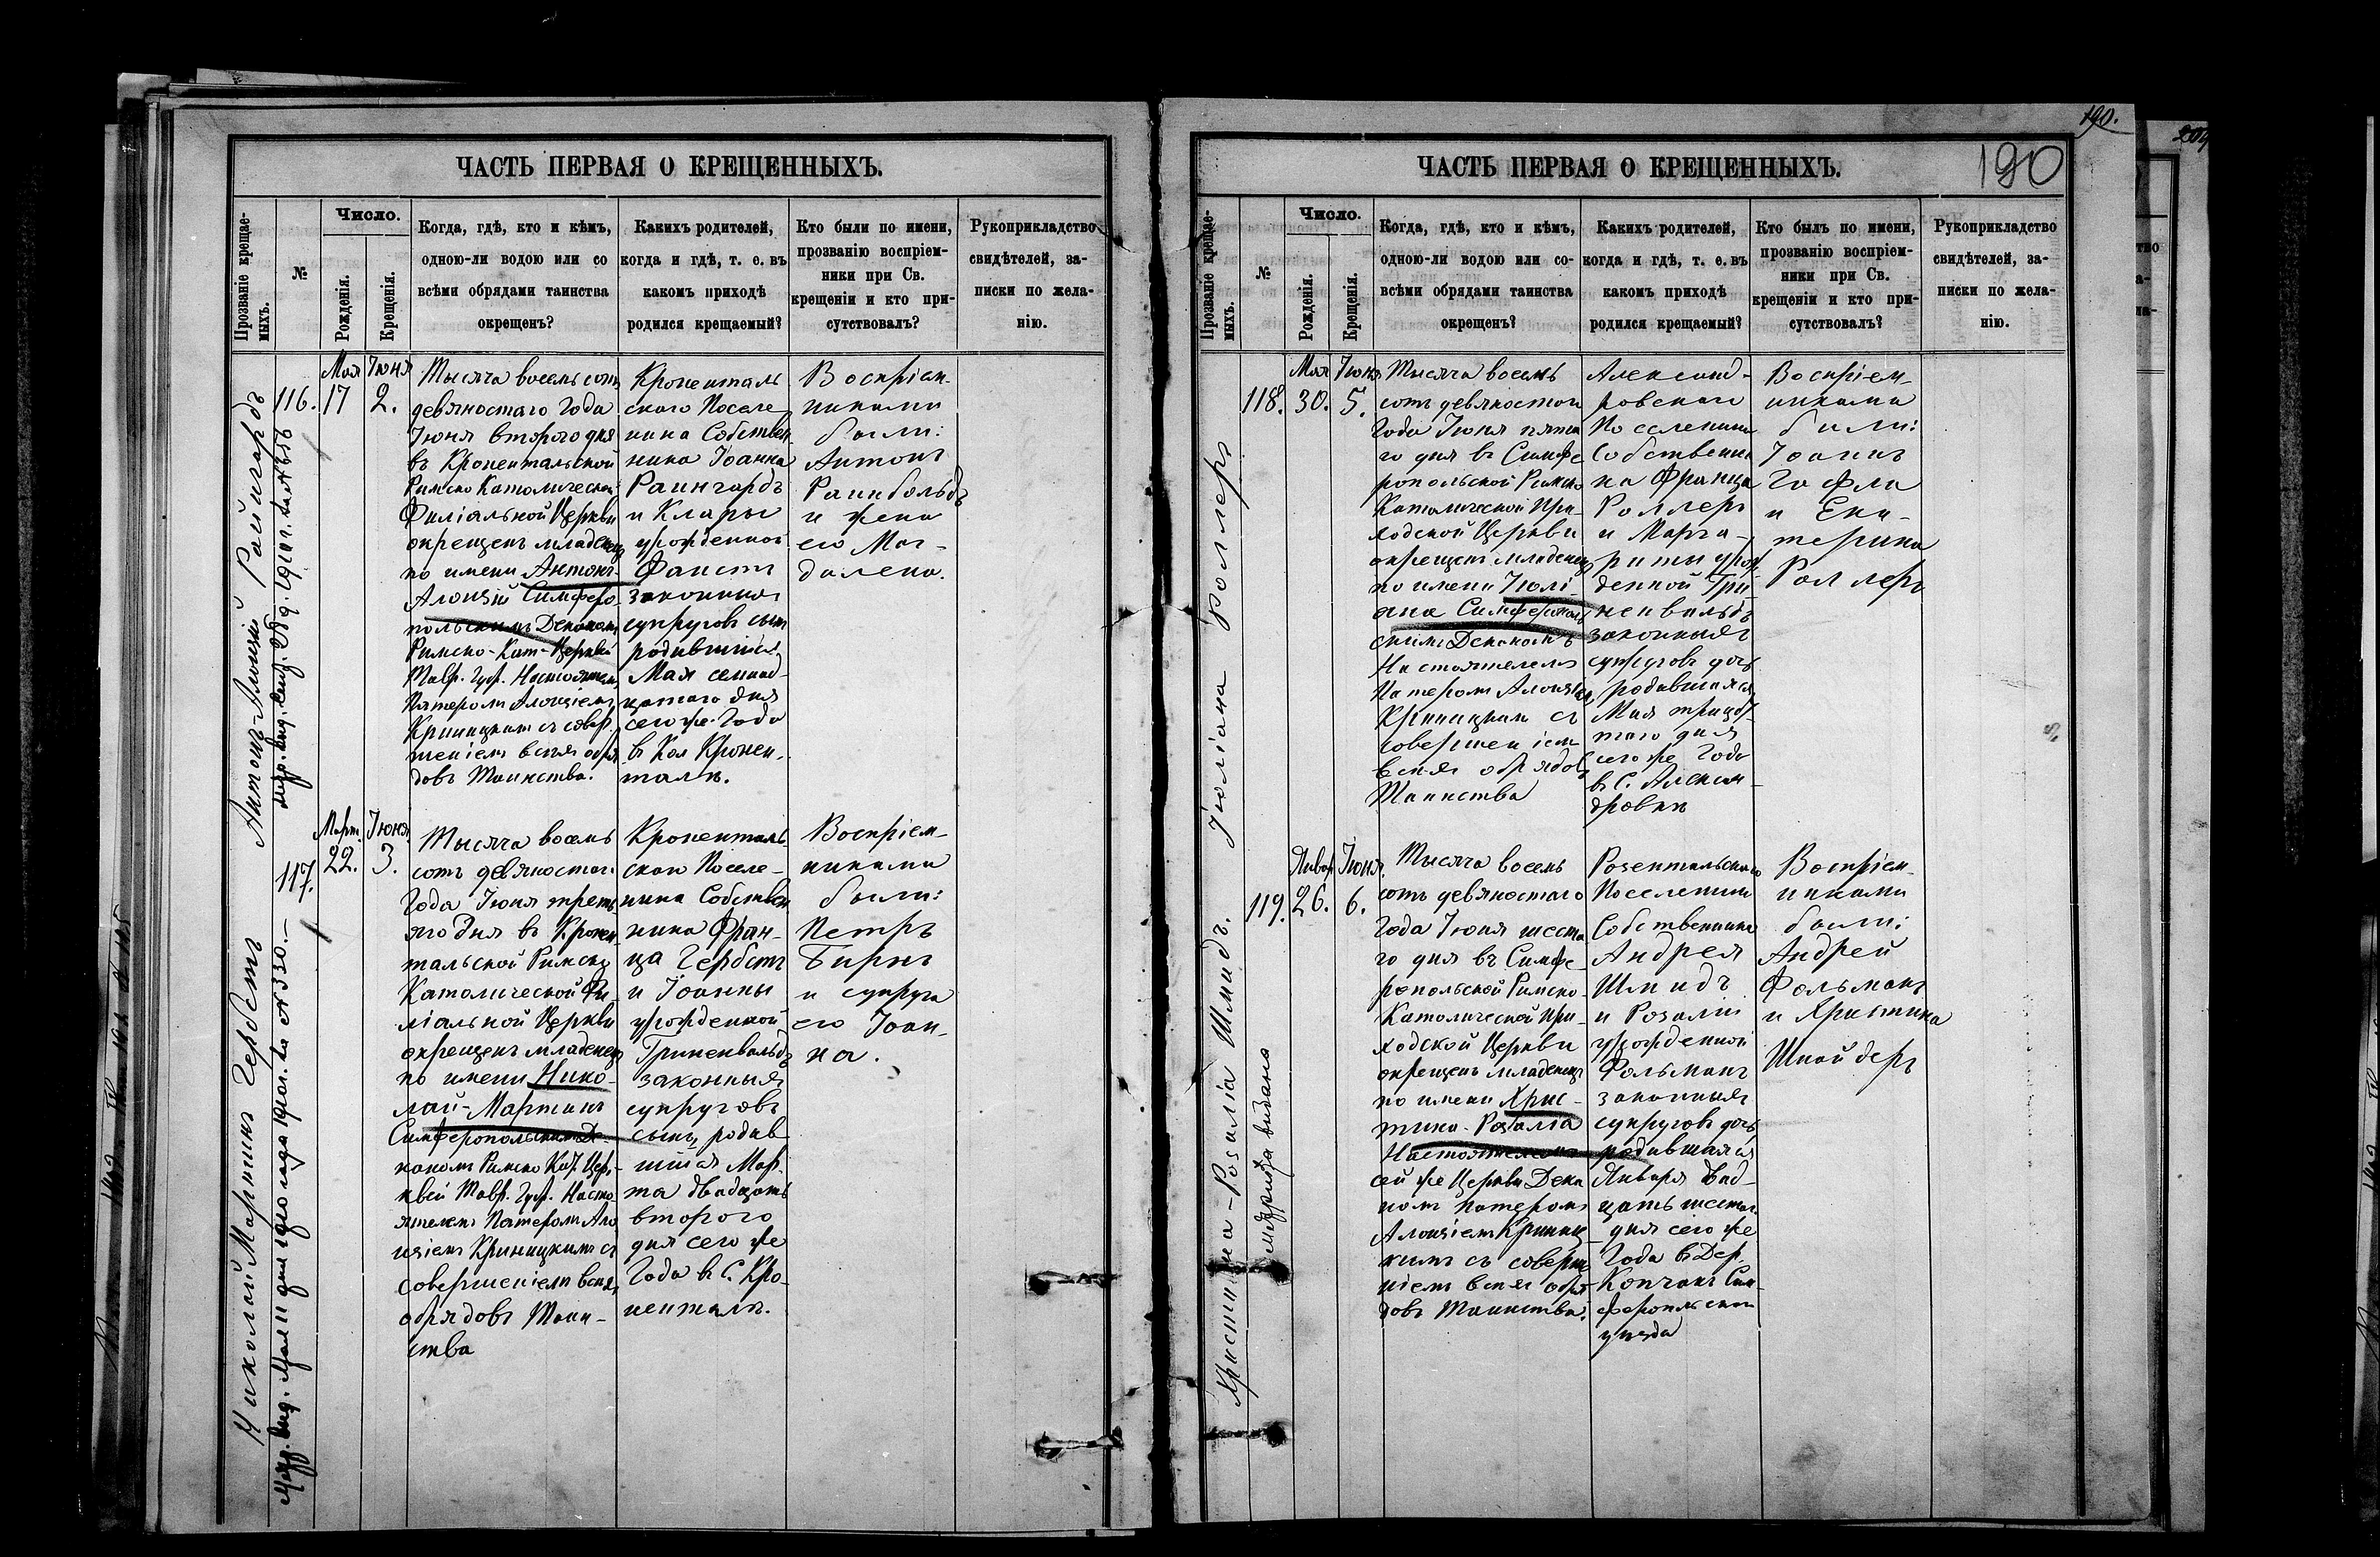 ЧАСТЬ ПЕРВАЯ О КРЕЩЕННЫХЪ.
Прозваніе крещае-
мыхъ.
№
Число.
Рожденія.
Крещенія.
Когда, гдѣ, кто и кѣмъ,
одною-ли водою или со
всѣми обрядами таинства
окрещенъ?
Какихъ родителей,
когда и гдѣ, т. е. въ
какомъ приходѣ
родился крещаемый?
Кто были по имени,
прозванію воспріем-
ники при Св.
крещеніи и кто при-
сутствовалъ?
Рукоприкладство
свидѣтелей, за-
писки по жела-
нію.
Антонъ-Алоизій Райнгардъ
116.
Мая
17
Іюня
2.
Тысяча восемьсотъ
девяностаго Года
Іюня второго дня
въ Кронентальской
Римско Католической
Филіальной Церкви
окрещенъ младенецъ
по имени Антонъ-
Алоизій Симферо-
польскимъ Деканомъ
Римско-Кат-Церквей
Тавр. Губ. Настоятелемъ
Патеромъ Алоизіемъ
Криницкимъ съ совер-
шеніемъ всѣхъ обря
довъ Таинства.
Кроненталь
скаго Поселе-
нина Собствен-
ника Іоанна
Раингардъ
и Клары
урожденной
Фаистъ
законныхъ
супруговъ сынъ
родившійся
Мая семнад-
цатаго дня
сего же Года
въ Кол Кронен-
талѣ.
Воспріем-
никами
были:
Антонъ
Раинбольдъ
и жена
его Маг-
далена.
Николай Мартинъ Гербстъ
Метр. выд. Мая 11 дня 1910 года за № 330.—
117.
Март.
22.
Іюня
3.
Тысяча восемь
сотъ девяностаго
Года Іюня треть
яго Дня въ Кронен
тальской Римско
Католической Фи-
ліальной Церкви
окрещенъ младенецъ
по имени Нико-
лай-Мартинъ
Симферопольскимъ Де-
каномъ Римско Кат. Цер-
квей Тавр. Губ. Насто-
ятелемъ Патеромъ Ало
изіемъ Криницкимъ съ
совершеніемъ всѣхъ
обрядовъ Таин-
ства
Кроненталь
скаго Поселе-
нина Собствен
ника Фран-
ца Гербстъ
и Іоанны
урожденной
Гриненвальдъ
законныхъ
супруговъ
сынъ, родив
шійся Мар-
та двадцать
второго
дня сего же
Года въ С. Кро-
ненталѣ.
Воспріем-
никами
были:
Петръ
Бирнъ
и супруга
его Іоан-
на.
190.
204
ЧАСТЬ ПЕРВАЯ О КРЕЩЕННЫХЪ.
190
Прозваніе крещае-
мыхъ.
№
Число.
Рожденія.
Крещенія.
Когда, гдѣ, кто и кѣмъ,
одною-ли водою или со-
всѣми обрядами таинства
окрещенъ?
Какихъ родителей,
когда и гдѣ, т. е. въ
какомъ приходѣ
родился крещаемый?
Кто былъ по имени,
прозванію воспріем-
ники при Св.
крещеніи и кто при-
сутствовалъ?
Рукоприкладство
свидѣтелей, за-
писки по жела-
нію.
Іюліана Роллеръ
118.
Мая
30.
Іюня
5.
Тысяча восемь
сотъ девяностаго
Года Іюня пята
го дня въ Симфе
ропольской Римско
Католической При-
ходской Церкви
окрещенъ младенецъ
по имени Іюлі-
ана Симферополь
скимъ Деканомъ
Настоятелемъ
Патеромъ Алоизіемъ
Криницкимъ съ
совершеніемъ
всѣхъ обрядовъ
Таинства
Александ-
ровскаго
Поселенина
Собственни
ка Франца
Роллеръ
и Марга-
риты урож
денной Гри
ненвальдъ
законныхъ
супруговъ дочь,
родившаяся
Мая тридца-
таго дня
сего же Года
въ С. Алексан-
дровкѣ
Воспріем-
никами
были:
Іоаннъ
Гофла
и Ека-
терина
Роллеръ
Христина-Розалія Шмидъ.
Метрика выдана
119.
Январ
26.
Іюня
6.
Тысяча восемь
сотъ девяностаго
Года Іюня шеста
го дня въ Симфе-
ропольской Римско-
Католической При-
ходской Церкви
окрещенъ младенецъ
по имени Хрис-
тина-Розалія
Настоятелемъ
сей же Церкви Дека
номъ Патеромъ
Алоизіемъ Криниц
кимъ съ соверше
ніемъ всѣхъ обря-
довъ Таинства.
Розентальскаго
Поселенина
Собственника
Андрея
Шмидъ
и Розаліи
урожденной
Фольманъ
законныхъ
супруговъ дочь,
родившаяся
Января двад-
цать шестаго
дня сего же
Года въ Дер
Копчакъ Сим-
феропольскаго
уѣзда
Воспріем-
никами
были:
Андрей
Фольманъ
и Христина
Шнайдеръ